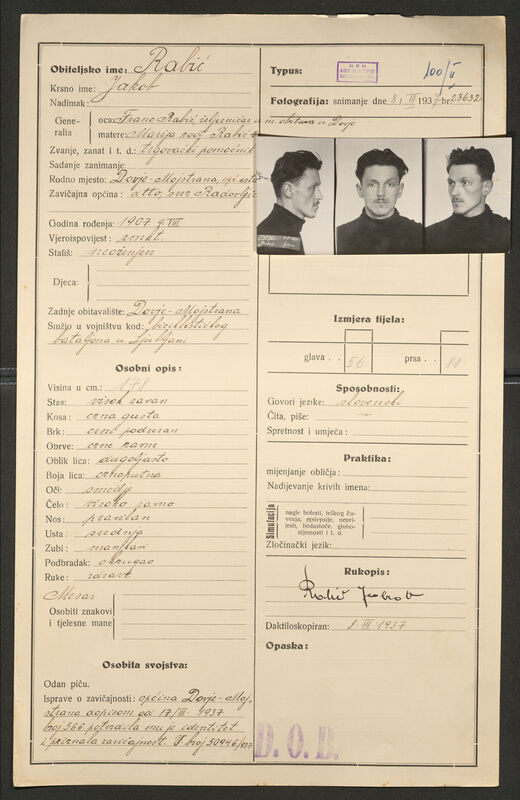 Obiteljsko ime: Rabić
Krsno ime: Jakob
Nadimak:
Gene-
ralia
oca: Franc Rabić, željezničar u m. obitava u Dovje
matere: Marija rodj. Rabić
Zvanje, zanat i t. d.: trgovački pomoćnik
Sadanje zanimanje:
Rodno mjesto: Dovje-Mojstrana, op. ista
Zavičajna općina: srez Radovljic
Godina rođenja: 1907. 9. VII
Vjeroispovijest: rmkt.
Stališ: neoženjen
Djeca:
Zadnje obitavalište: Dovje-Mojstrana
Služio u vojništvu kod: biciklističkog
bataljona u Ljubljani
Osobni opis:
Visina u cm.: 178
Stas: visok ravan
Kosa: crna gusta
Brk: crni podrezan
Obrve: crne ravne
Oblik lica: dugoljasto
Boja lica: crnoputna
Oči: smedje
Čelo: visoko ravno
Nos: pravilan
Usta: srednja
Zubi: manjkavi
Podbradak: okrugao
Ruke: zdrave
Osobiti znakovi
i tjelesne mane
Osobita svojstva:
Odan piću.
Isprave o zavičajnosti: općina Dovje-Moj.
strana dopisom od 17/III. 1937
broj 566 potvrdila mu je identitet
i priznala zavičajnost. V broj 50946/937
Typus:
100/II
Fotografija: snimanje dne 8. III 1937. br. 23632
Izmjera tijela:
glava . . 56
prsa . . 88
Sposobnosti:
Govori jezike: slovenski
Čita, piše: -"-
Spretnost i umjeća:
Praktika:
mijenjanje obličja:
Nadijevanje krivih imena:
Simulacija
nagle bolesti, teškog ču-
venja, epilepsije, nesvi-
jesti, bedastoće, gluho-
nijemosti i t. d.
Zločinački jezik:
Rukopis:
Rabič Jakob
Daktiloskopiran: 8. III 1937
Opaska:
D. O. B.